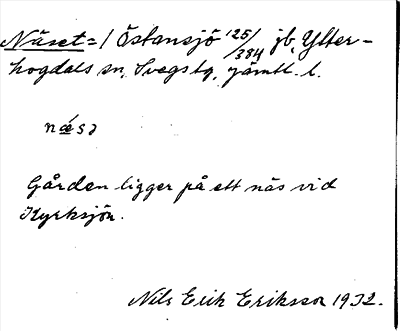 Näset = / Östansjö 125/384 jb, Ytter-
hogdals sn, Svegs tg, Jämtl. l.
næsə
Gården ligger på ett näs vid
Kyrksjön.
Nils Erik Eriksson 1932.